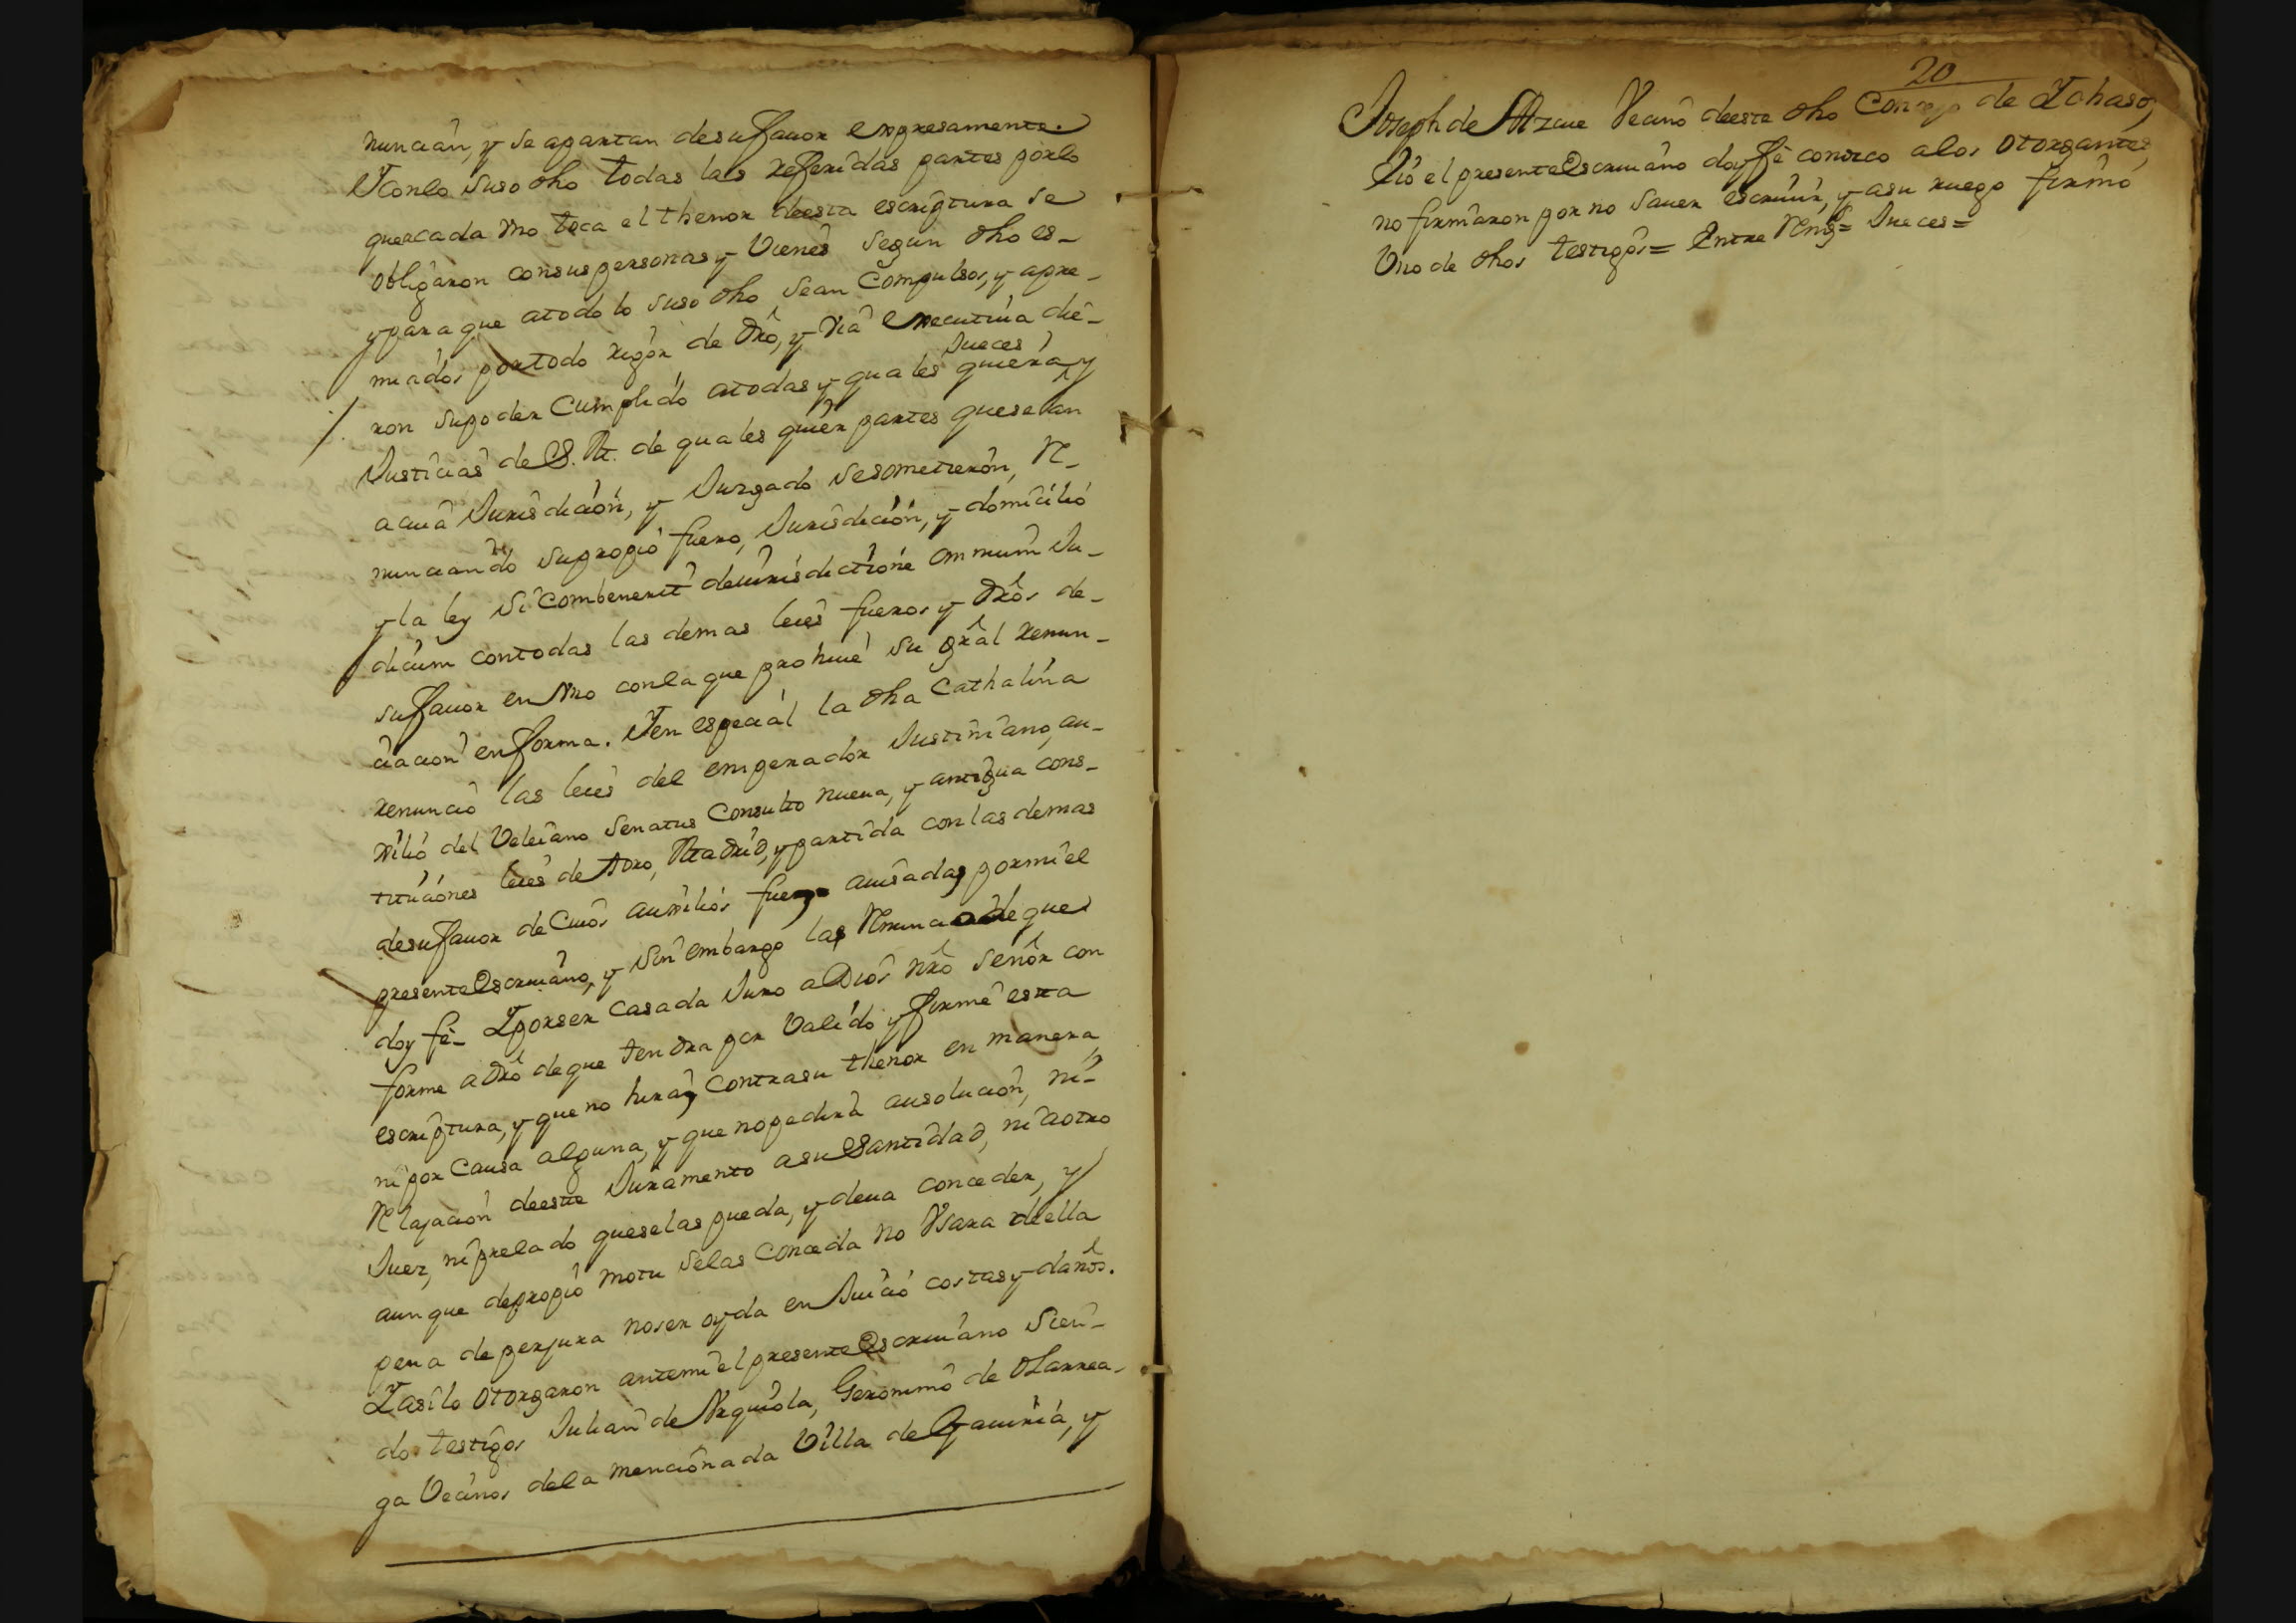 nunciân, y se apartan desuffauor expresamente.
Yconlo suso dho todas las refferidas partes porlo
queacada vno toca el thenor deesta escriptura se
obligaron consus personas y vienes segun dho es-
ypara que atodo lo suso dho sean Compulsos, y apre-
miados portodo rigôr de drô, y viâ executiua die-
jueces
ron supoder Cumplido atodas y quales quiera y
Justicias de S. M. de quales quier partes quesean
acuiâ Jurisdiciôn, y Juzgado sesometierôn, Re-
nunciando supropio fuero, Jurisdiciôn, y domicilio
y la ley si combenerit dejurisdictione omnium Ju-
dicum contodas las demas leies fueros y drôs de-
suffauor en vno conla que prohiue su grâl renun-
ciacion enfforma. Yen especial la dha Cathalina
renunciô las leies del emperador Justiniano, au-
xilio del Veleiano Senatus Consulto nueua, y antigua cons-
tituciones leies de toro, Madrid, y partida con las demas
desuffauor de Cuios auxilios fue auisada pormi el
presente Escriuano, y sin embargo las Renuncio deque
doy fê- Yporser casada Juro aDios nrô señor con
forme adrô deque tendra por valido y firme esta
escriptura, y que no hira contrasu thenor en manera
ni por causa alguna, y que nopedira ausoluciôn, ni-
Relajaciôn deeste Juramento asu Santidad, ni aotro
Juez, ni prelado queselas pueda, y deua conceder, y
aunque depropio motu selas conceda no vsara deella
pena de perjura noser oyda en Juicio costas y daños.
Yasilo otorgaron antemi el presente Escriuano sien-
do testigos Julian de Vrquiola, Geronimo de Olarrea-
ga Vecinos dela mencionada Villa de Gauiria, y
20
Joseph de Azcue Vecino deesta dho Concejo de Ychaso,
Yio el presente Escriuano doy ffê conozco alos otorgantes,
no firmaron por no sauer escriuir, y asu ruego firmô
Vno de dhos testigos= Entre Rengs= Jueces=